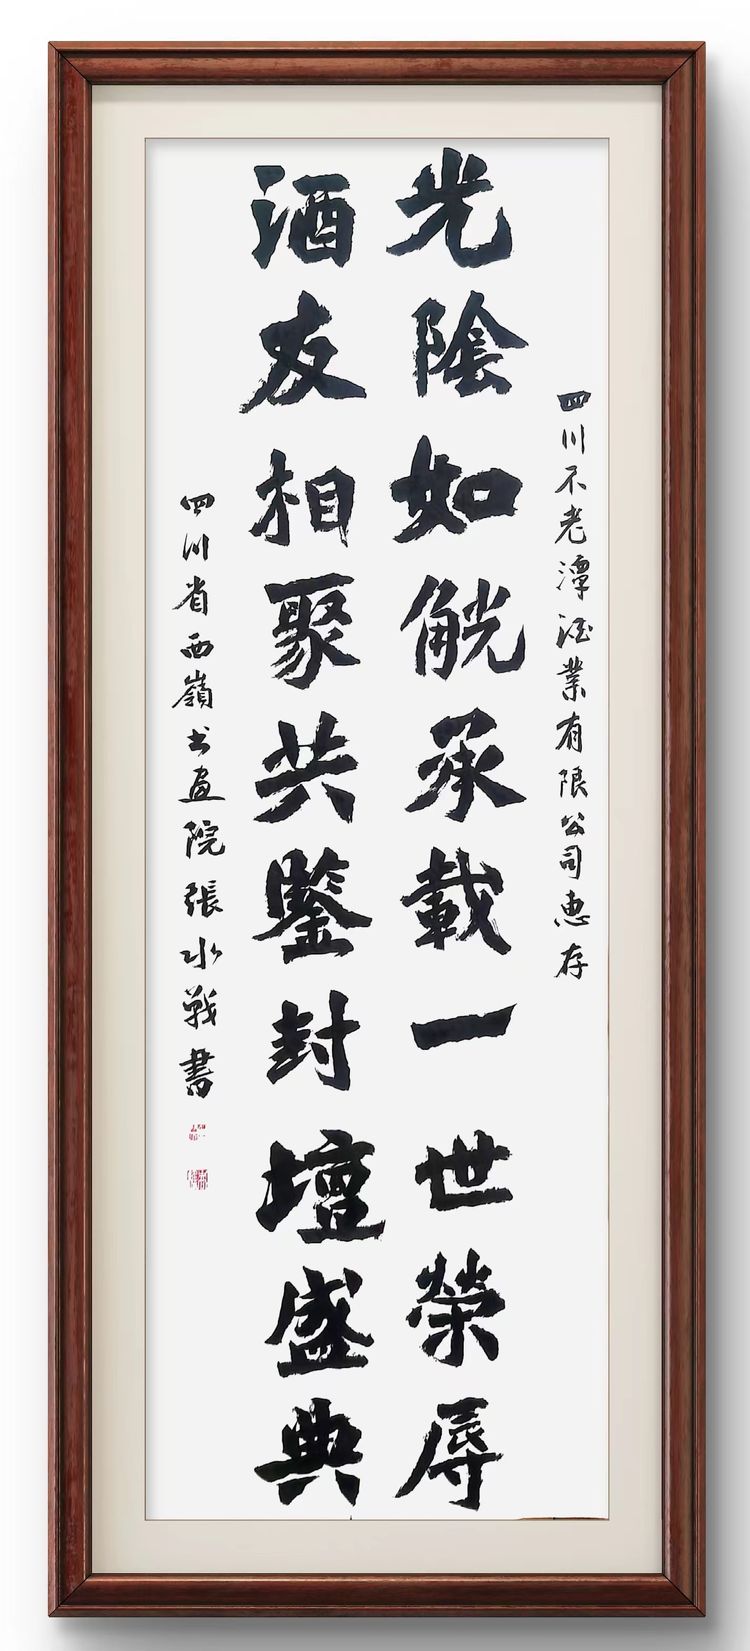 四川不老潭酒業有限公司惠存
光陰如觥承載一世榮辱
酒友相聚共鑒封壇盛典
四川省西嶺书画院張水戰書